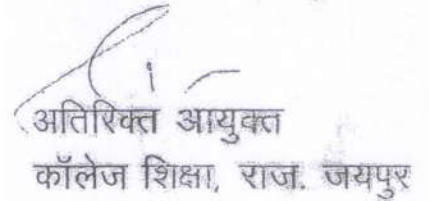 अतिरिक्त आयुक्त
कॉलेज शिक्षा, राज. जयपुर